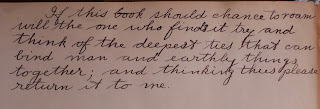 If this book should chance to roam
will the one who finds it try and
think of the deepest ties that can
bind man and earthly things
together; and thinking thus please
return it to me.